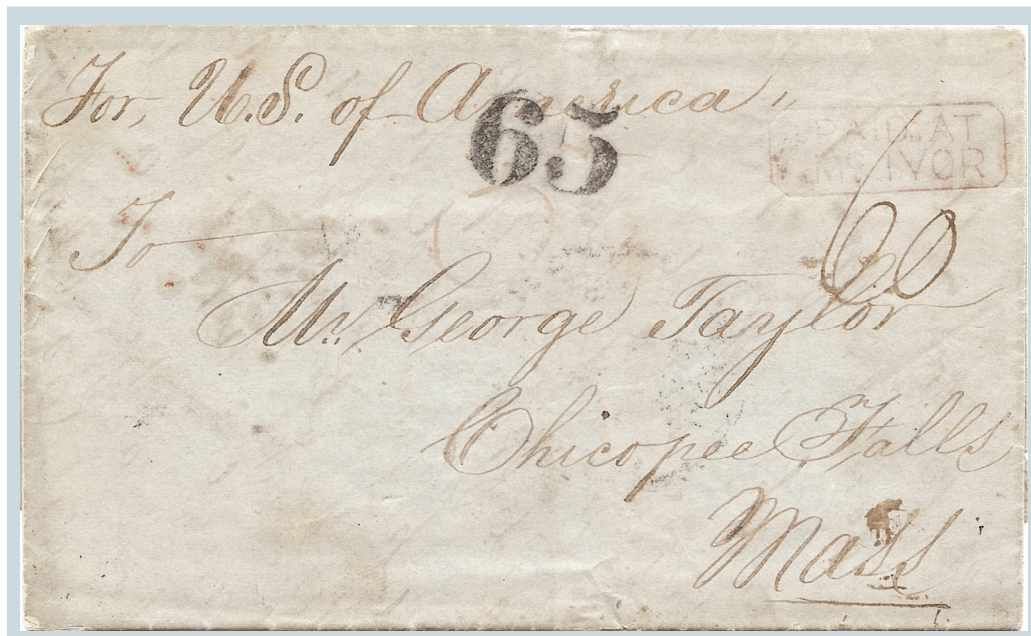 For, U.S. of America "
65
PAID AT
Mc IVOR
60
To
Mr. George Taylor
Chicopee Falls
Mass